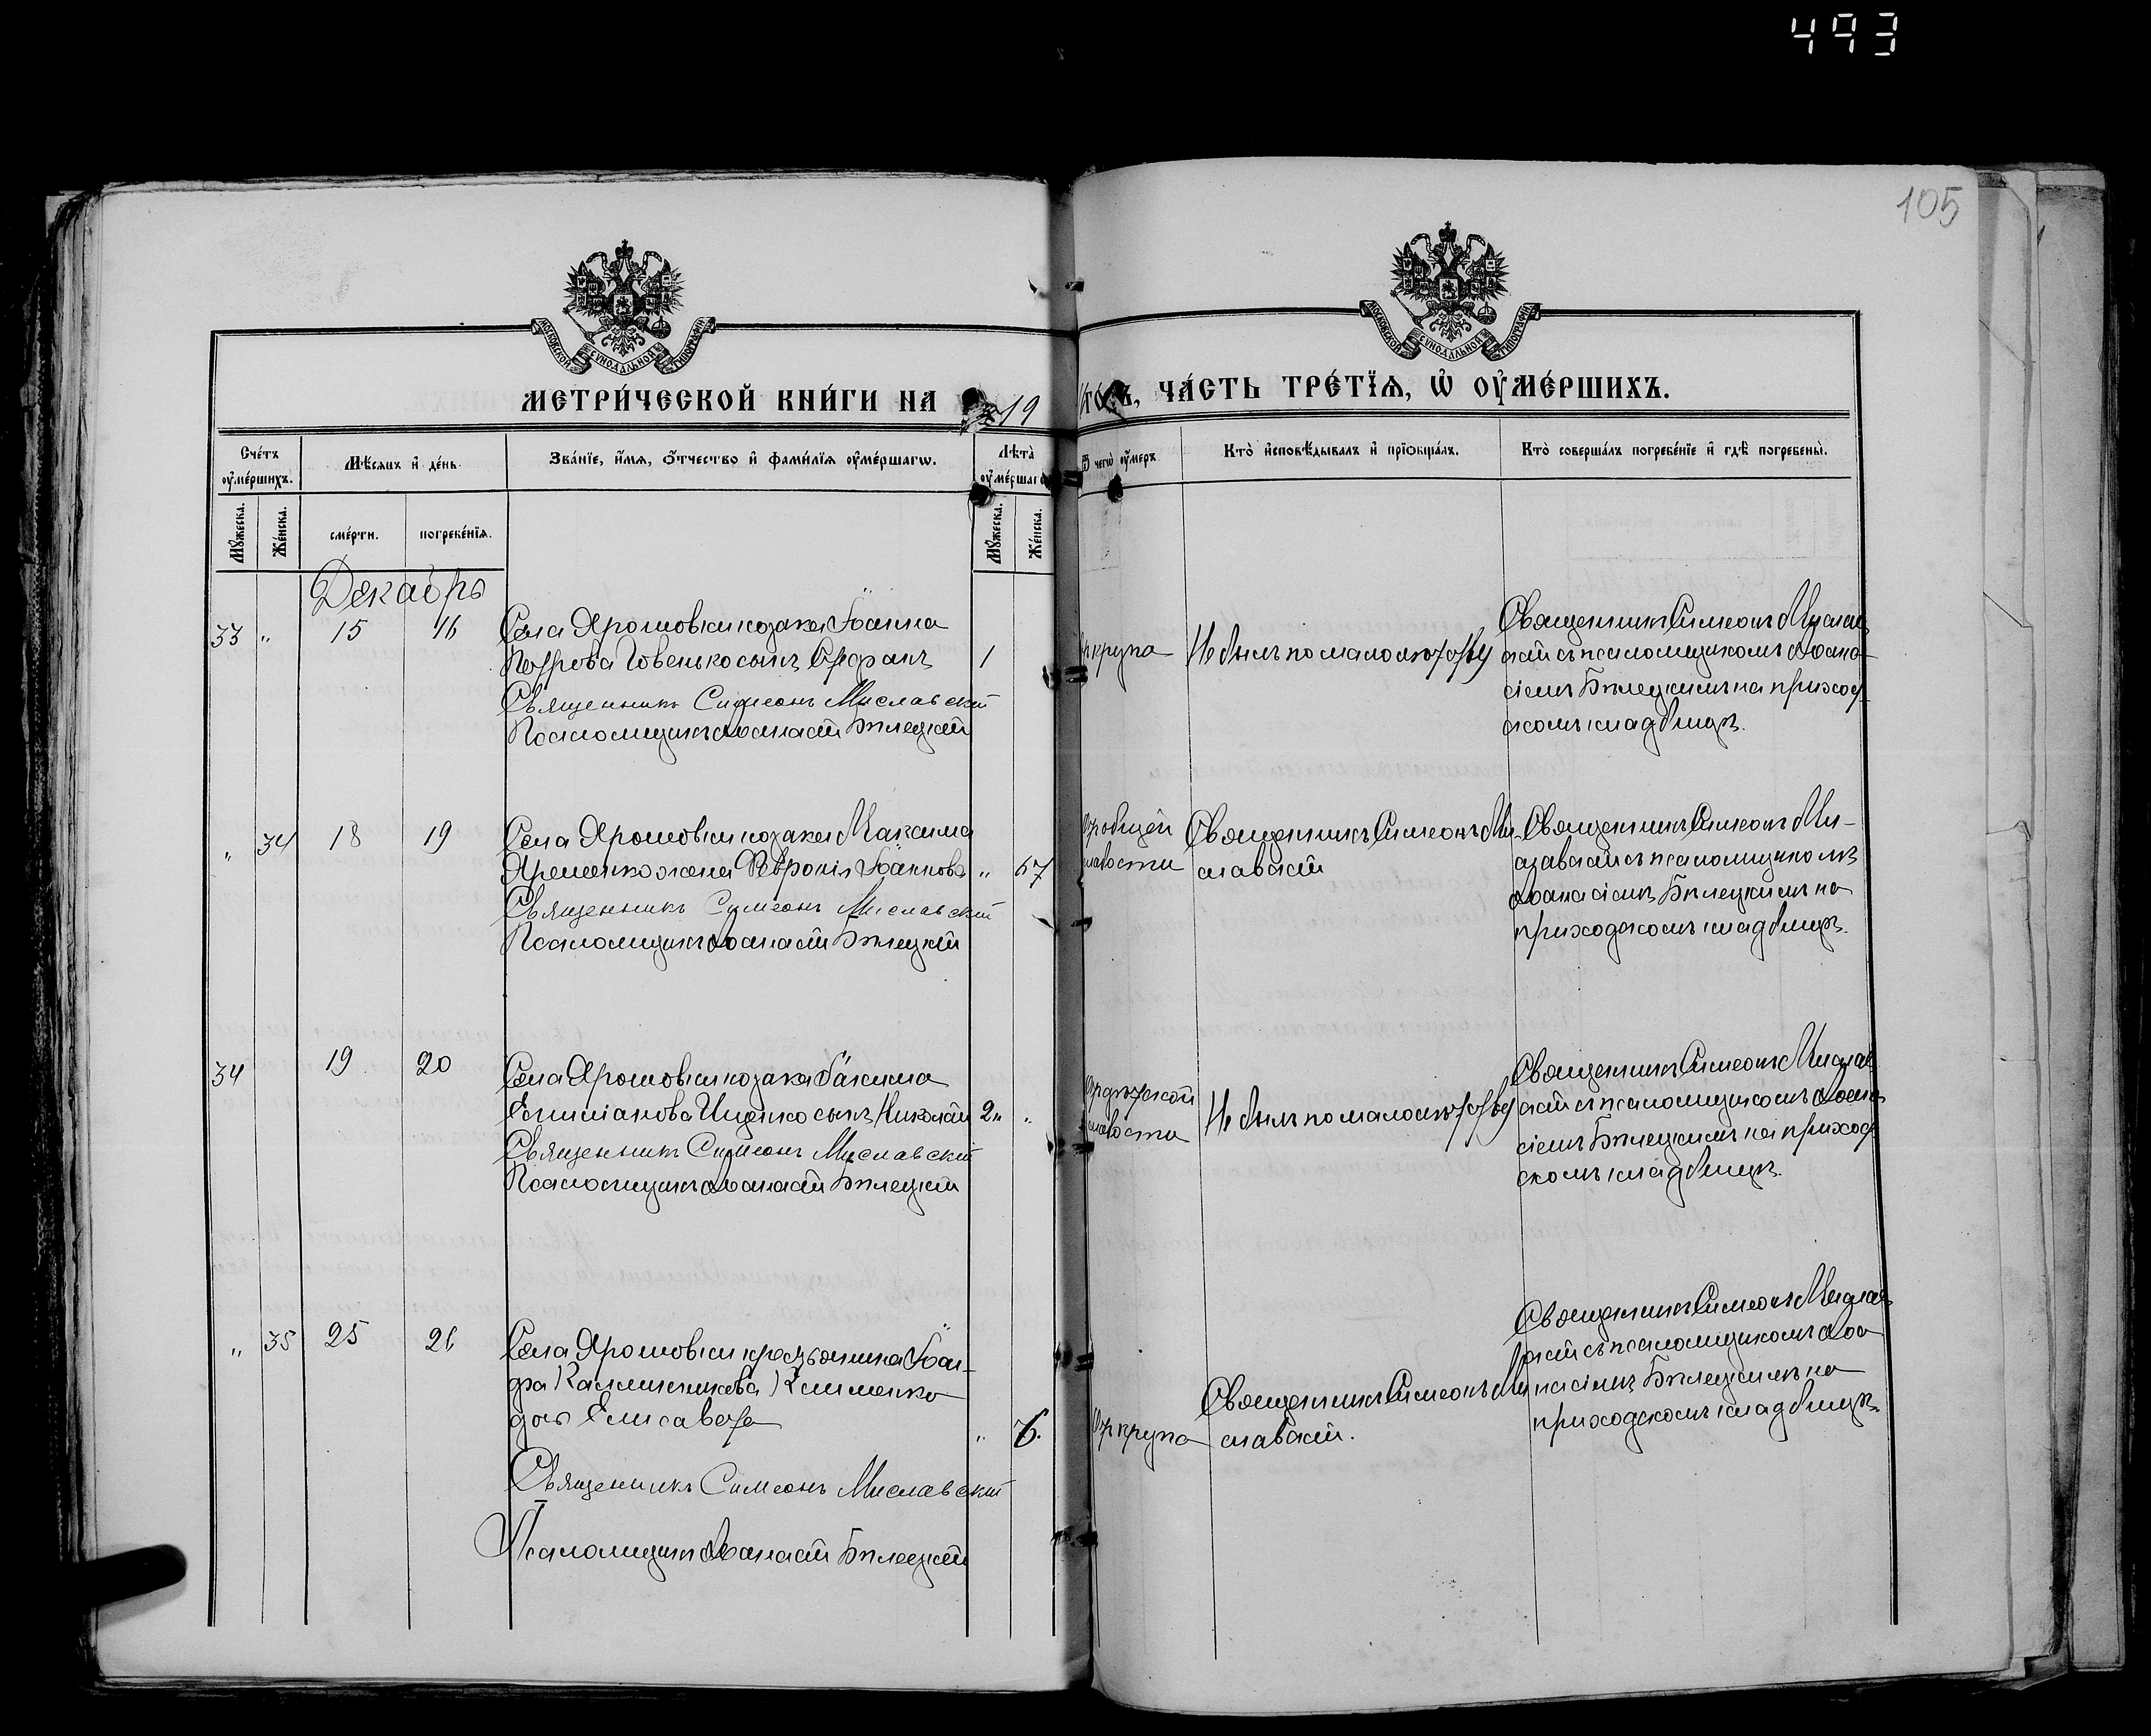 493
105
МОСКОВСКОЙ СУНОДАЛЬНОЙ ТИПОГРАФІИ
МОСКОВСКОЙ СУНОДАЛЬНОЙ ТИПОГРАФІИ
МЕТРИ́ЧЕСКОЙ КНИ́ГИ НА 19 ЧА́СТЬ ТРЕ́ТІѦ, Ѡ҆ ОУ҆МЕ́РШИХЪ.
Сче́тъ оу҆ме́ршихъ.
Мѣ́сѧцъ и҆ де́нь.
Зва́нїе, и҆́мѧ, ѻ҆́тчество и҆ фами́лїѧ оу҆ме́ршагѡ.
Лѣ̑та оу҆ме́ршагѡ
Ѿ чегѡ̀ оу҆́меръ
Кто̀ и҆сповѣ́дывалъ и҆ прїѡбща́лъ.
Кто̀ соверша́лъ погребе́нїе и҆ гдѣ̀ погребены̀.
Мꙋ́жеска.
Же́нска.
сме́рти.
погребе́нїѧ.
Мꙋ́жеска.
Же́нска.
Декабрь
33 " 15 16 Села Ярошовки козака Іоанна
Петрова Говенько сынъ Стефанъ 1
Священникъ Симеонъ Миславскій
Псаломщикъ Аѳанасій Бѣлецкій
крупа
Не былъ по малолѣтству
Священникъ Симеонъ Мислав-
скій съ псаломщикомъ Аѳана-
сіемъ Бѣлецкимъ на приход-
скомъ кладбищѣ.
" 34 18 19 Села Ярошовки козака Максима
Яременко жена Февронія Іоаннова " 67
Священникъ Симеонъ Миславскій
Псаломщикъ Аѳанасій Бѣлецкій
От общей
слабости
Священникъ Симеонъ Ми-
славскій
Священникъ Симеонъ Ми-
славскій съ псаломщикомъ
Аѳанасіемъ Бѣлецкимъ на
приходскомъ кладбищѣ.
34 19 20 Села Ярошовки козака Іакима
Епишіанова Ищенко сынъ Николай 2м "
Священникъ Симеонъ Миславскій
Псаломщикъ Аѳанасій Бѣлецкій
От дѣтской
слабости
Не былъ по малолѣтству
Священникъ Симеонъ Мислав
скій съ псаломщикомъ Аѳана
сіемъ Бѣлецкимъ на приход
скомъ кладбищѣ.
" 35 25 26 Села Ярошовки крестьянина
Клименко
дочь Елисавета " 7
Священникъ Симеонъ Миславскій
Псаломщикъ Аѳанасій Бѣлецкій
От крупа
Священникъ Симеонъ Ми
славскій.
Священникъ Симеонъ Мислав
скій съ псаломщикомъ Аѳа
насіемъ Бѣлецкимъ на
приходскомъ кладбищѣ.